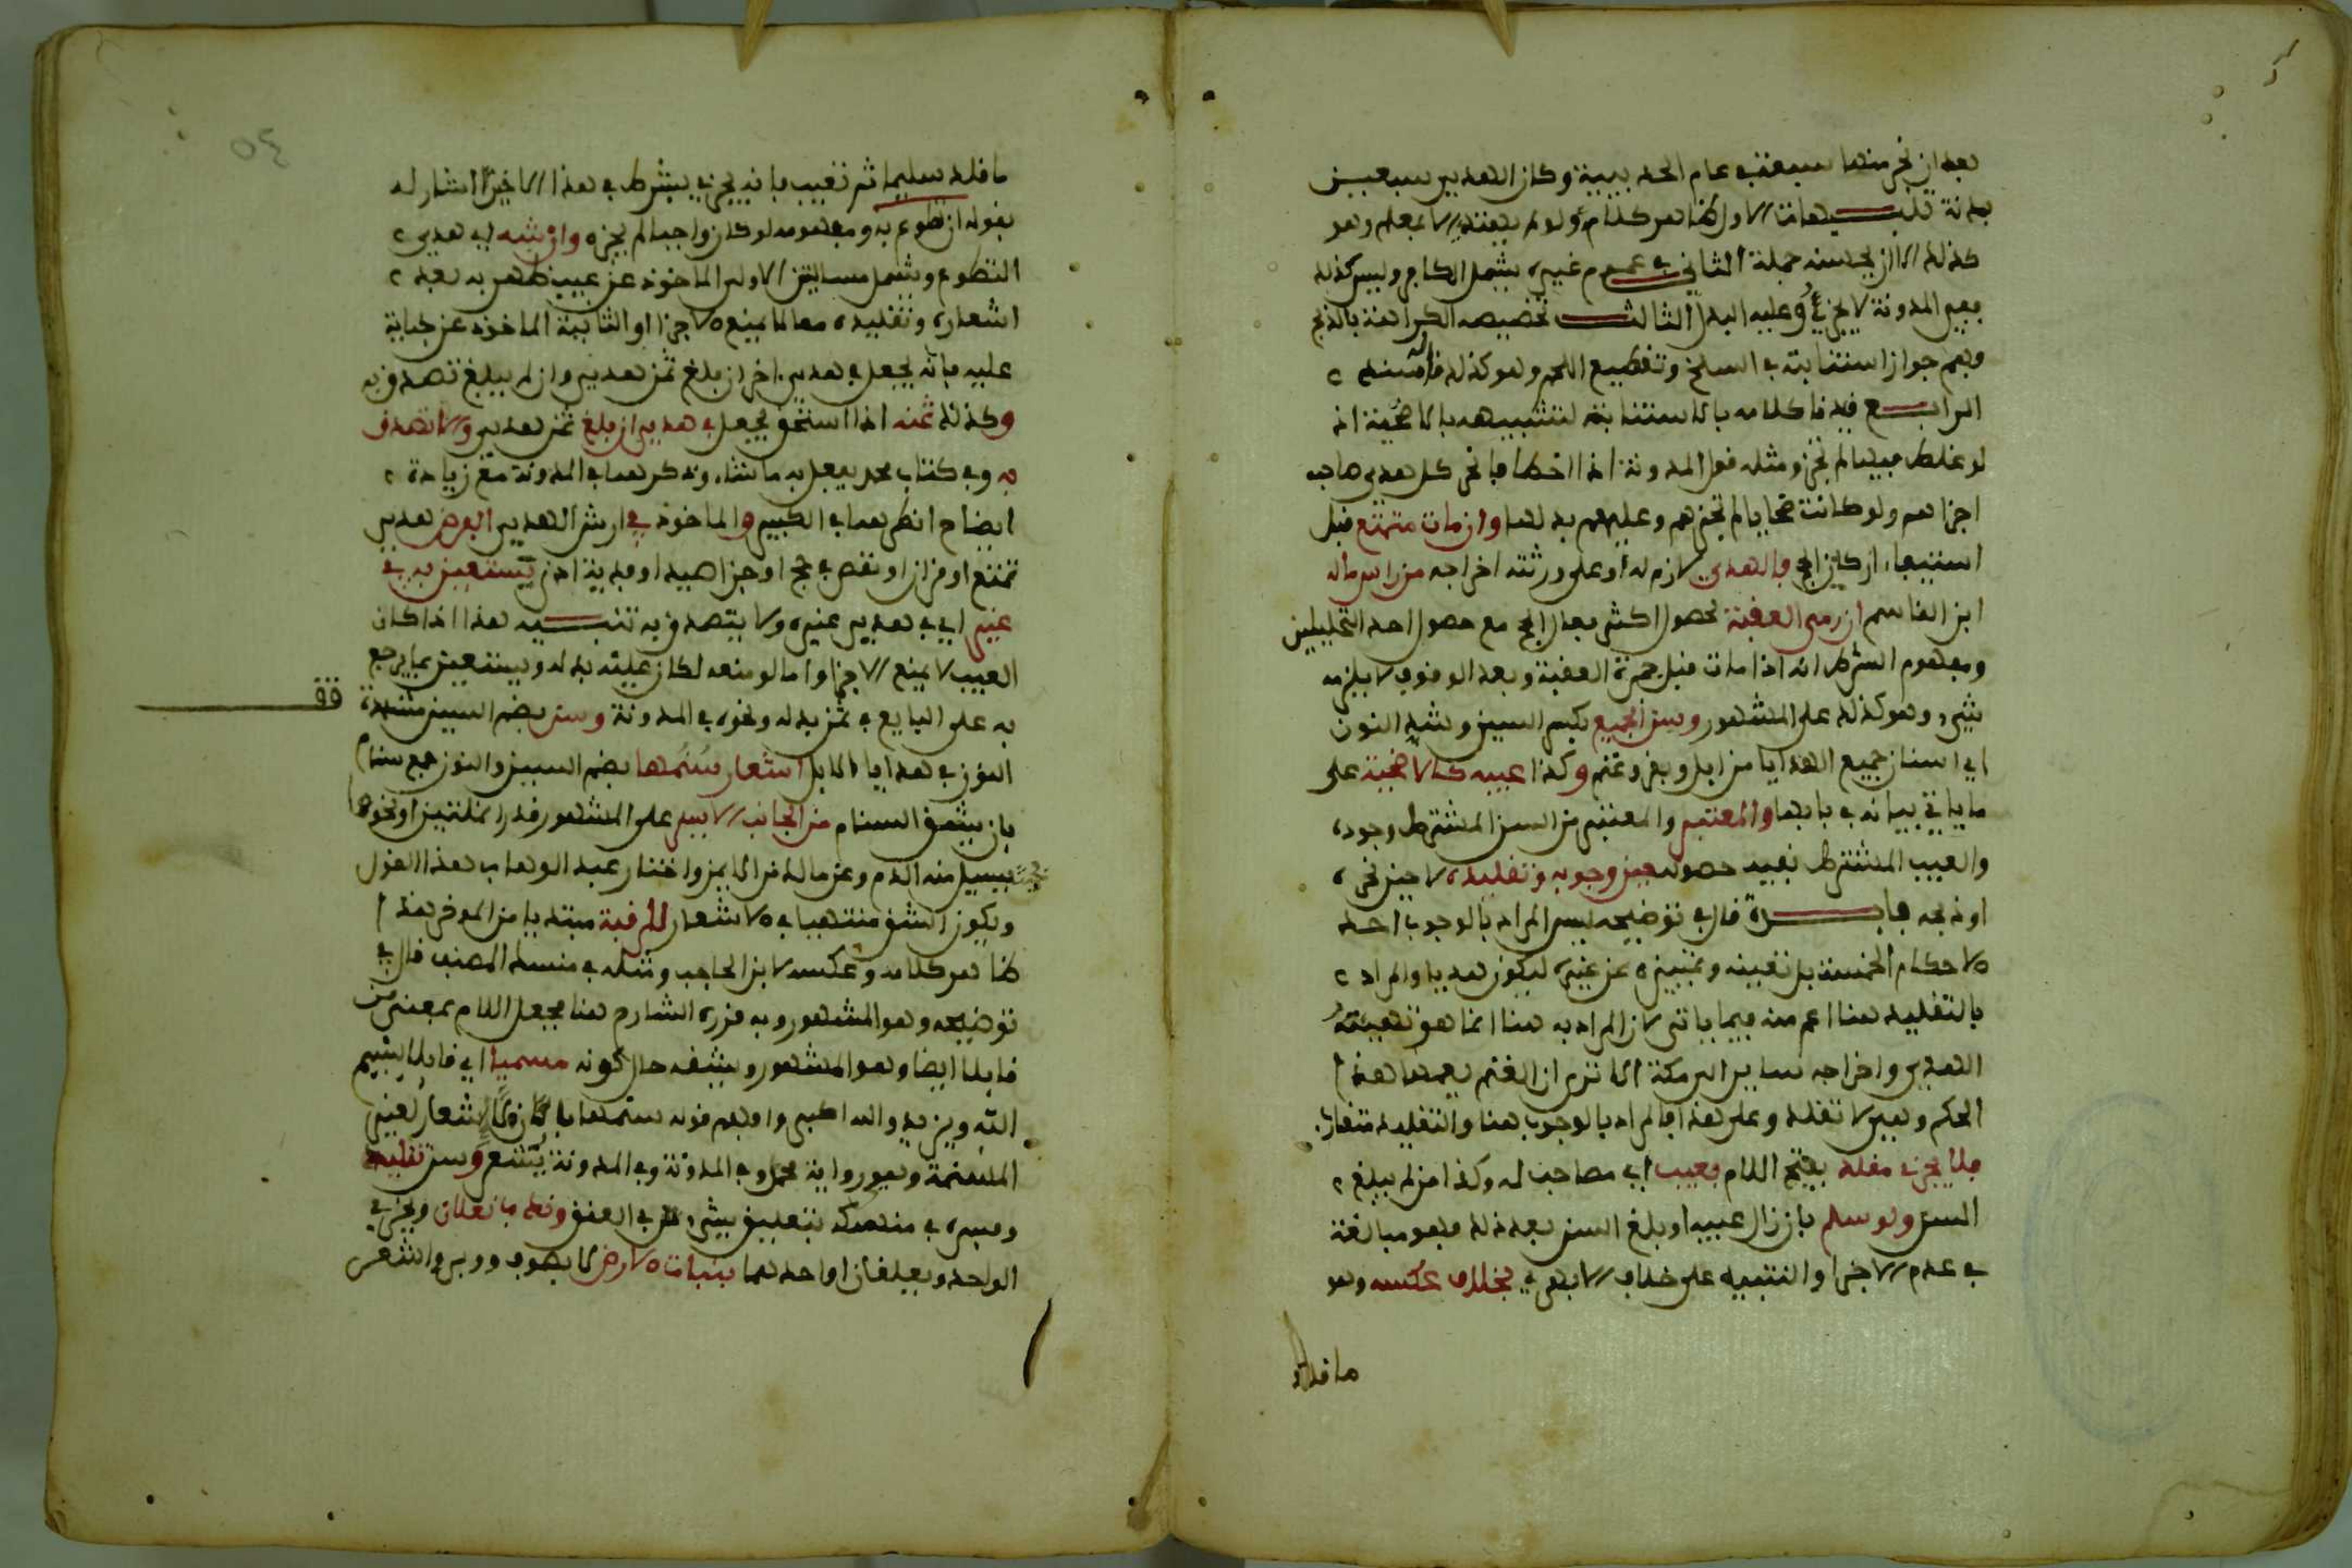 بعد ان نحر منها سبعة في عام الحديبية وكان الهدي سبعين
بدنة تنبيهات الاول ظاهر كلامه ولو لم يهتد الا بمعلم وهو
كذلك الا ان يحسنه جملة الثاني في عموم غيره يشمل الكافر وليس كذلك
ففي المدونة لا يجزئ وعليه البدل الثالث تخصيصه الكراهة بالذبح
وفهم جواز استنابته في السلخ وتقطيع اللحم وهو كذلك
الرابع قيدنا كلامه بالاستنابة لتشبيهه بالاضحية اذ
لو غلط فيها لم تجز ومثله قول المدونة اذا اخطا فانحر كل هدي صاحبه
اجزاهم ولو كانت ضحايا لم تجزهم وعليهم بدلها وان مات متمتع قبل
استيفاء اركان الحج فالهدي لازم له او على ورثته اخراجه من راس ماله
ابن القاسم ان رمى العقبة لحصول اكثر افعال الحج مع حصول احد التحليلين
ومفهوم الشرط انه اذا مات قبل جمرة العقبة وبعد الوقوف لا يلزمه
شيء وهو كذلك على المشهور وسن الجميع بكسر السين وشد النون
اي اسنان جميع الهدايا من ابل وبقر وغنم وكذا عيبه كالاضحية على
ما ياتي بيانه في بابها والمعتبر والمعتبر من السن المشترط وجوده
والعيب المشترط نفيه حصوله حين وجوبه وتقليده لا حين نحره
او ذبحه فائدة قال في توضيحه ليس المراد بالوجوب احد
الاحكام الخمسة بل تعيينه وتمييزه عن غيره ليكون هديا والمراد
بالتقليد هنا اعم منه فيما ياتي لان المراد به هنا انما هو تهيئة
الهدي واخراجه سايرا الى مكة الا ترى ان الغنم يعمها هذا
الحكم وهي لا تقلد وعلى هذا فالمراد بالوجوب هنا والتقليد متقارب
فلا يجزئ مقلد بفتح اللام بعيب اي مصاحب له وكذا من لم يبلغ
السن ولو سلم بان زال عيبه او بلغ السن بعد ذلك فهو مبالغة
في عدم الاجزا والتنبيه على خلاف الابهري بخلاف عكسه وهو
ما قلد
٥٤
ما قلد سليما ثم تعيب فانه يجزئ بشرط في هذا الاخير اشار له
بقوله ان تطوع به ومفهومه لو كان واجبا لم يجزه وارشه اي هدي
التطوع ويشمل مسالتين الاولى الماخوذ عن عيب ظهر به بعد
اشعاره وتقليده مما لا يمنع الاجزا او الثانية الماخوذ عن جناية
عليه فانه يجعل في هدي اخر ان بلغ ثمن هدي وان لم يبلغ تصدق به
وكذلك ثمنه اذا استحق يجعل في هدي ان بلغ ثمن هدي والا تصدق
به وفي كتاب محمد يفعل به ما شاء وذكرهما في المدونة مع زيادة
ايضاح انظرهما في الكبير والماخوذ في ارش الهدي الفرض هدي
تمتع او قران او نقص في حج او جزا صيد او فدية اذى يستعين به في
غير اي في هدي غيره ولا يتصدق به تنبيه هذا اذا كان
العيب لا يمنع الاجزا واما لو منعه لكان عليه بدله ويستعين بما يرجع
به على البايع في ثمن بدله ونحوه في المدونة وسن بضم السين مشددة
النون في هدايا الابل اشعار سنمها بضم السين والنون جمع سنام
بان يشق السنام من الجانب الايسر على المشهور قدر انملتين او نحوها
فيسيل منه الدم وعن مالك من الايمن واختار عبد الوهاب هذا القول
ويكون الشق منتهيا في الاشعار للرقبة مبتديا من المؤخر هذا
ظاهر كلامه وعكسه لابن الحاجب ومثله في منسك المصنف قال في
توضيحه وهو المشهور وبه قرره الشارح هنا فجعل اللام بمعنى من
قايلا ايضا وهو المشهور ويشقه حال كونه مسميا اي قايلا بسم
الله ويزيد والله اكبر وافهم قوله سنمها لا اشعار لغير
المسنمة وهو رواية محمد وفي المدونة وفي المدونة يشعر وسن تقليد
وفسره في منسكه بتعليق شيء في العنق وندب نعلان ويجزئ
الواحد ويعلقان او احدهما بنبات الارض لا بصوف ووبر والشعر